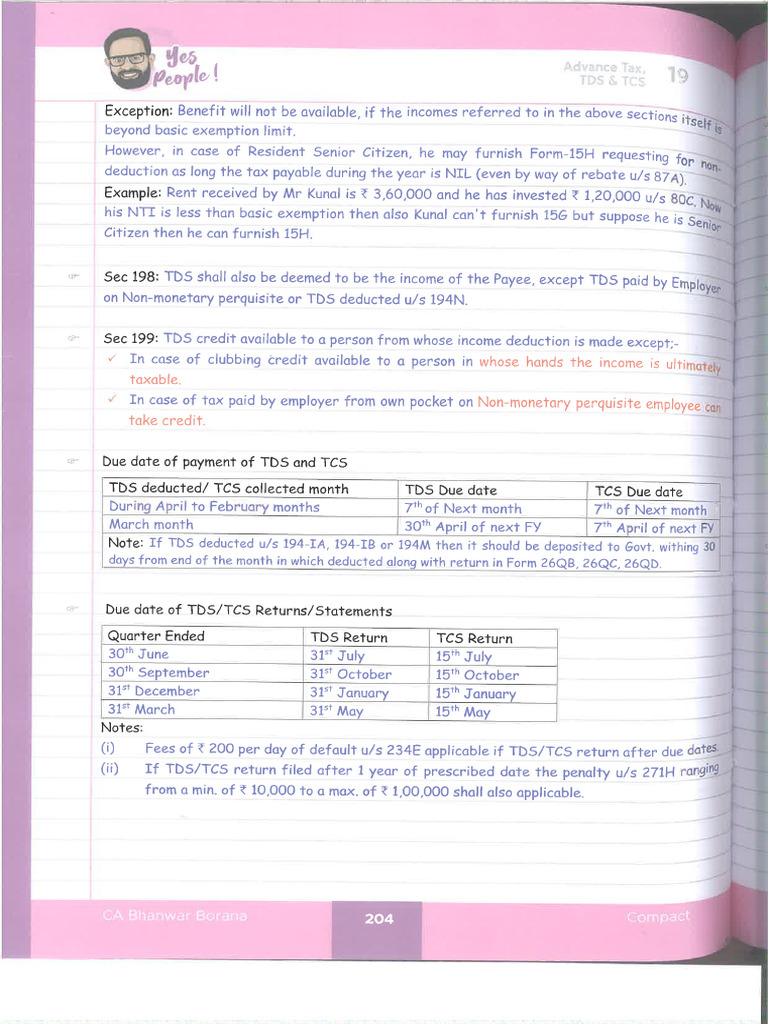 Yes
People !
Advance Tax,
TDS & TCS
19
Exception: Benefit will not be available, if the incomes referred to in the above sections itself is
beyond basic exemption limit.
However, in case of Resident Senior Citizen, he may furnish Form-15H requesting for non-
deduction as long the tax payable during the year is NIL (even by way of rebate u/s 87A).
Example: Rent received by Mr Kunal is ₹ 3,60,000 and he has invested ₹ 1,20,000 u/s 80C. Now
his NTI is less than basic exemption then also Kunal can't furnish 15G but suppose he is Senior
Citizen then he can furnish 15H.
☞ Sec 198: TDS shall also be deemed to be the income of the Payee, except TDS paid by Employer
on Non-monetary perquisite or TDS deducted u/s 194N.
☞ Sec 199: TDS credit available to a person from whose income deduction is made except;-
✓ In case of clubbing credit available to a person in whose hands the income is ultimately
taxable.
✓ In case of tax paid by employer from own pocket on Non-monetary perquisite employee can
take credit.
☞ Due date of payment of TDS and TCS
TDS deducted/ TCS collected month TDS Due date TCS Due date
During April to February months 7th of Next month 7th of Next month
March month 30th April of next FY 7th April of next FY
Note: If TDS deducted u/s 194-IA, 194-IB or 194M then it should be deposited to Govt. withing 30
days from end of the month in which deducted along with return in Form 26QB, 26QC, 26QD.
☞ Due date of TDS/TCS Returns/Statements
Quarter Ended TDS Return TCS Return
30th June 31st July 15th July
30th September 31st October 15th October
31st December 31st January 15th January
31st March 31st May 15th May
Notes:
(i) Fees of ₹ 200 per day of default u/s 234E applicable if TDS/TCS return after due dates.
(ii) If TDS/TCS return filed after 1 year of prescribed date the penalty u/s 271H ranging
from a min. of ₹ 10,000 to a max. of ₹ 1,00,000 shall also applicable.
CA Bhanwar Borana
204
Compact